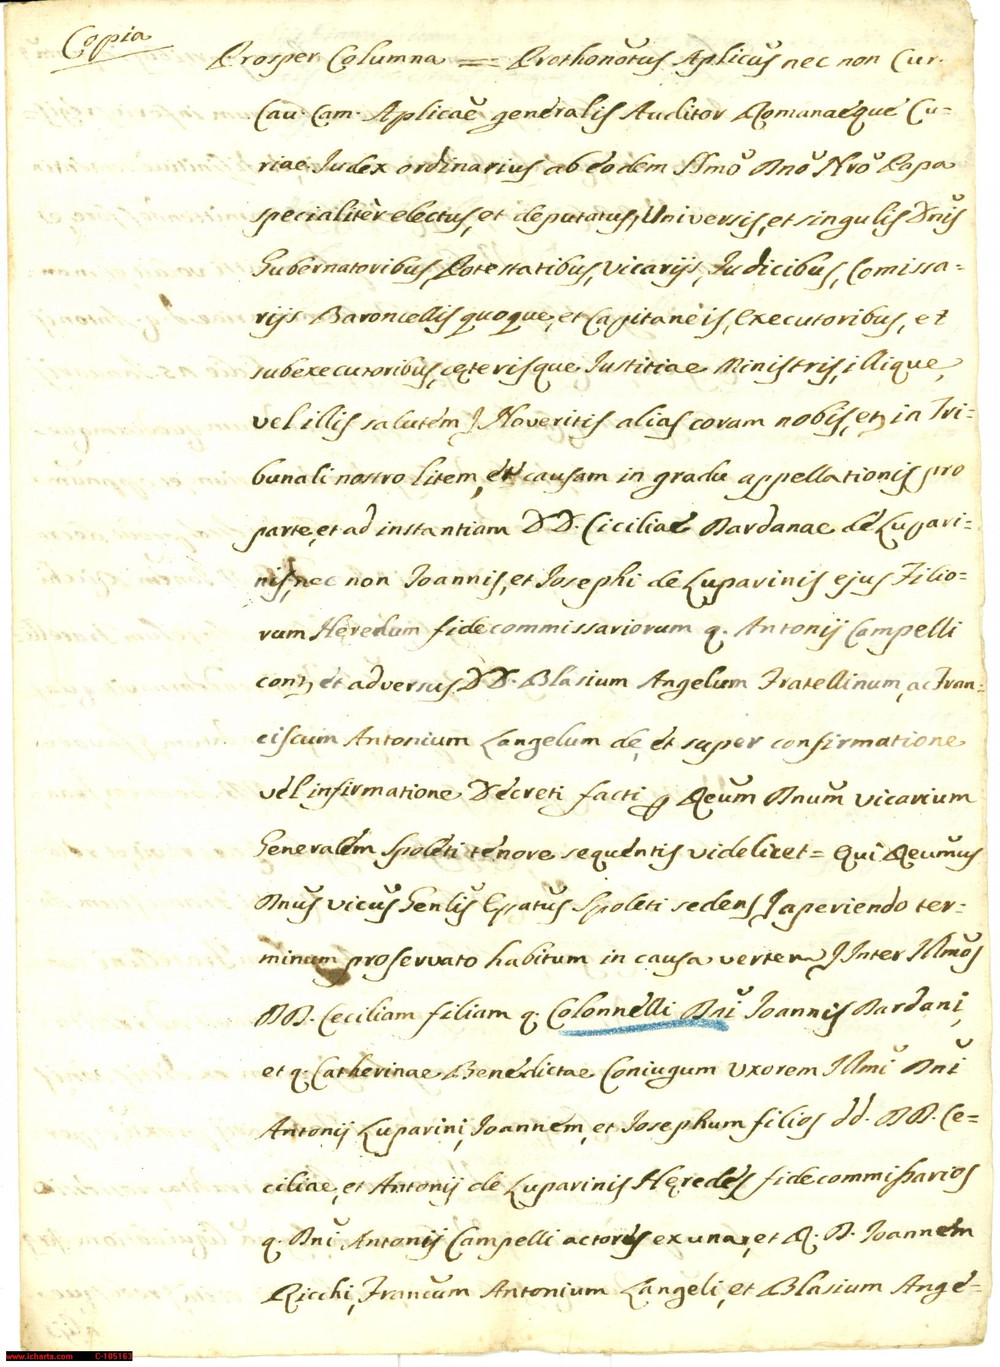 Copia
Prosper Columna == Prothonotus Aplicus nec non Cur.
Cau. Cam. Aplicae generalis Auditor Romanaeque Cu=
riae Judex ordinarius ab eodem SSmo Dno Nro Papa
specialiter electus, et deputatus, Universis, et singulis Dnis
Gubernatoribus, Potestatibus, Vicarijs, Judicibus, Comissa=
rijs Baroncellis quoque, et Capitaneis, Executoribus, et
subexecutoribus, ceterisque Justitiae Ministris, illique,
vel illis salutem Noveritis alias coram nobis, et in Tri=
bunali nostro litem, et causam in gradu appellationis pro
parte, et ad instantiam DD. Ciciliae Bardanae de Lupari=
nis, nec non Joannis, et Josephi de Luparinis ejus Filio=
rum Heredum fidecommissariorum q. Antonij Campelli
con, et adversus DD. Blasium Angelum Fratellinum, ac Fran=
ciscum Antonium Langelum de, et super confirmatione
vel infirmatione Decreti facti p Reum Dnum Vicarium
Generalem Spoleti tenore sequentis videlicet = Qui Reumus
Dnus Vicus Genlis Epatus Spoleti sedens aperiendo ter=
minum proservato habitum in causa verten Inter Illmos
DD. Ceciliam filiam q. Colonnelli Dni Joannis Bardani,
et q. Catherinae Benedictae Coniugum Uxorem Illmi Dni
Antonij Luparini, Joannem, et Josephum filios dd. DD. Ce=
ciliae, et Antonij de Luparinis Heredes fidecommissarios
q. Dni Antonij Campelli actores ex una, et R. D. Joannem
Ricchi, Francum Antonium Langeli, et Blasium Ange=
www.icharta.com C-105163